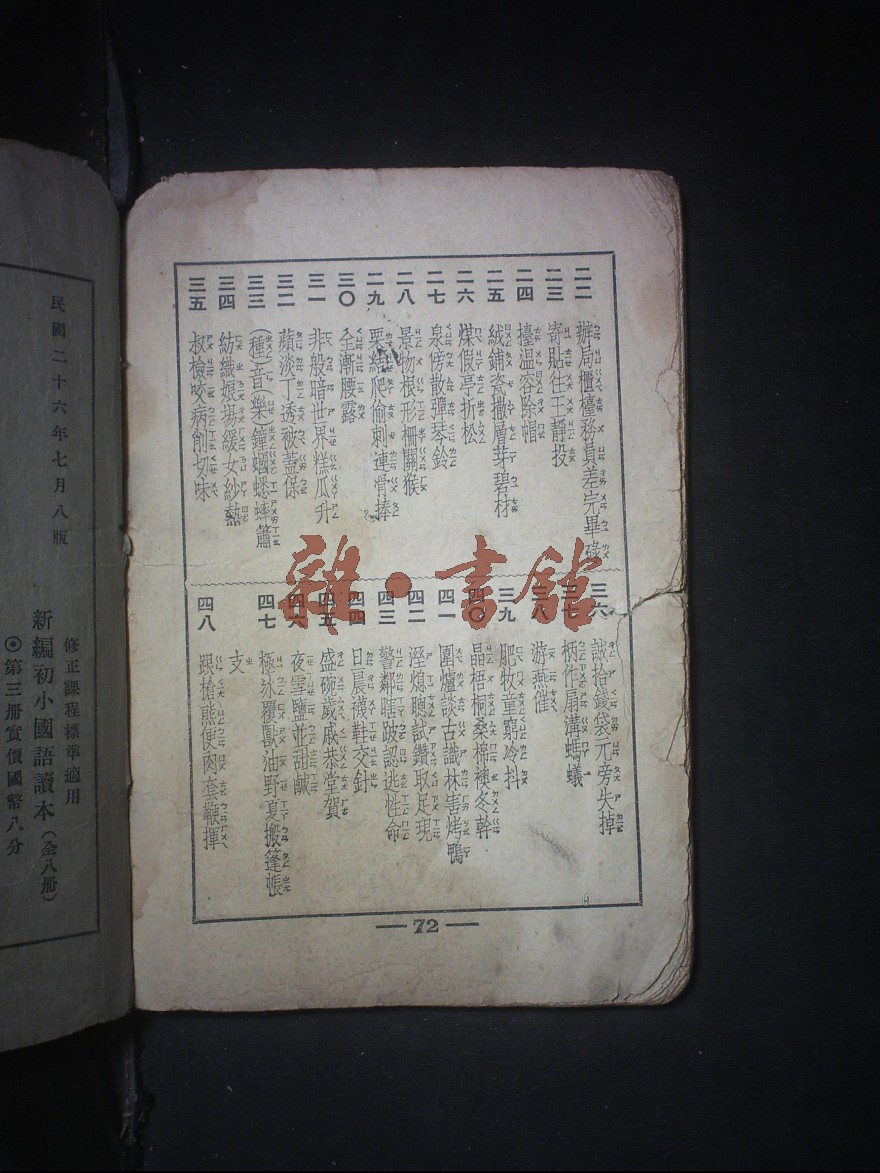 二二 辦局櫃檯務員差完畢碌
二三 寄貼往王靜投
二四 擡温容除帽
二五 絨鋪瓷撒層芽碧材
二六 煤假亭折松
二七 泉傍散彈琴鈴
二八 景物根形柵關猴
二九 栗結爬偷刺連骨捧
三〇 全漸腰露
三一 非般暗世界糕瓜升
三二 蘋淡丁透被蓋保
三三 (種)音(樂)鐘蟈蟋蟀簫
三四 紡織娘揚緩女紗熱
三五 叔檢咬病削切味
三六 誠拾錢袋元旁失掉
三七 柄作扇溝螞蟻
三八 游燕催
三九 肥牧童窮冷抖
四〇 晶梧桐桑棉襖冬幹
四一 圍爐談古識林害烤鴨
四二 溼熄聰試鑽取足現
四三 警鄰瞎跛認逃性命
四四 日晨襪鞋交針
四五 盛碗歲戚恭堂賀
四六 夜雪鹽並甜鹹
四七 極泳覆獸油野夏搬篷帳
支
四八 跟搶熊便肉套鞭揮
雜·書館
72
民國二十六年七月八版
修正課程標準適用
新編初小國語讀本(全八册)
⊙第三册實價國幣八分